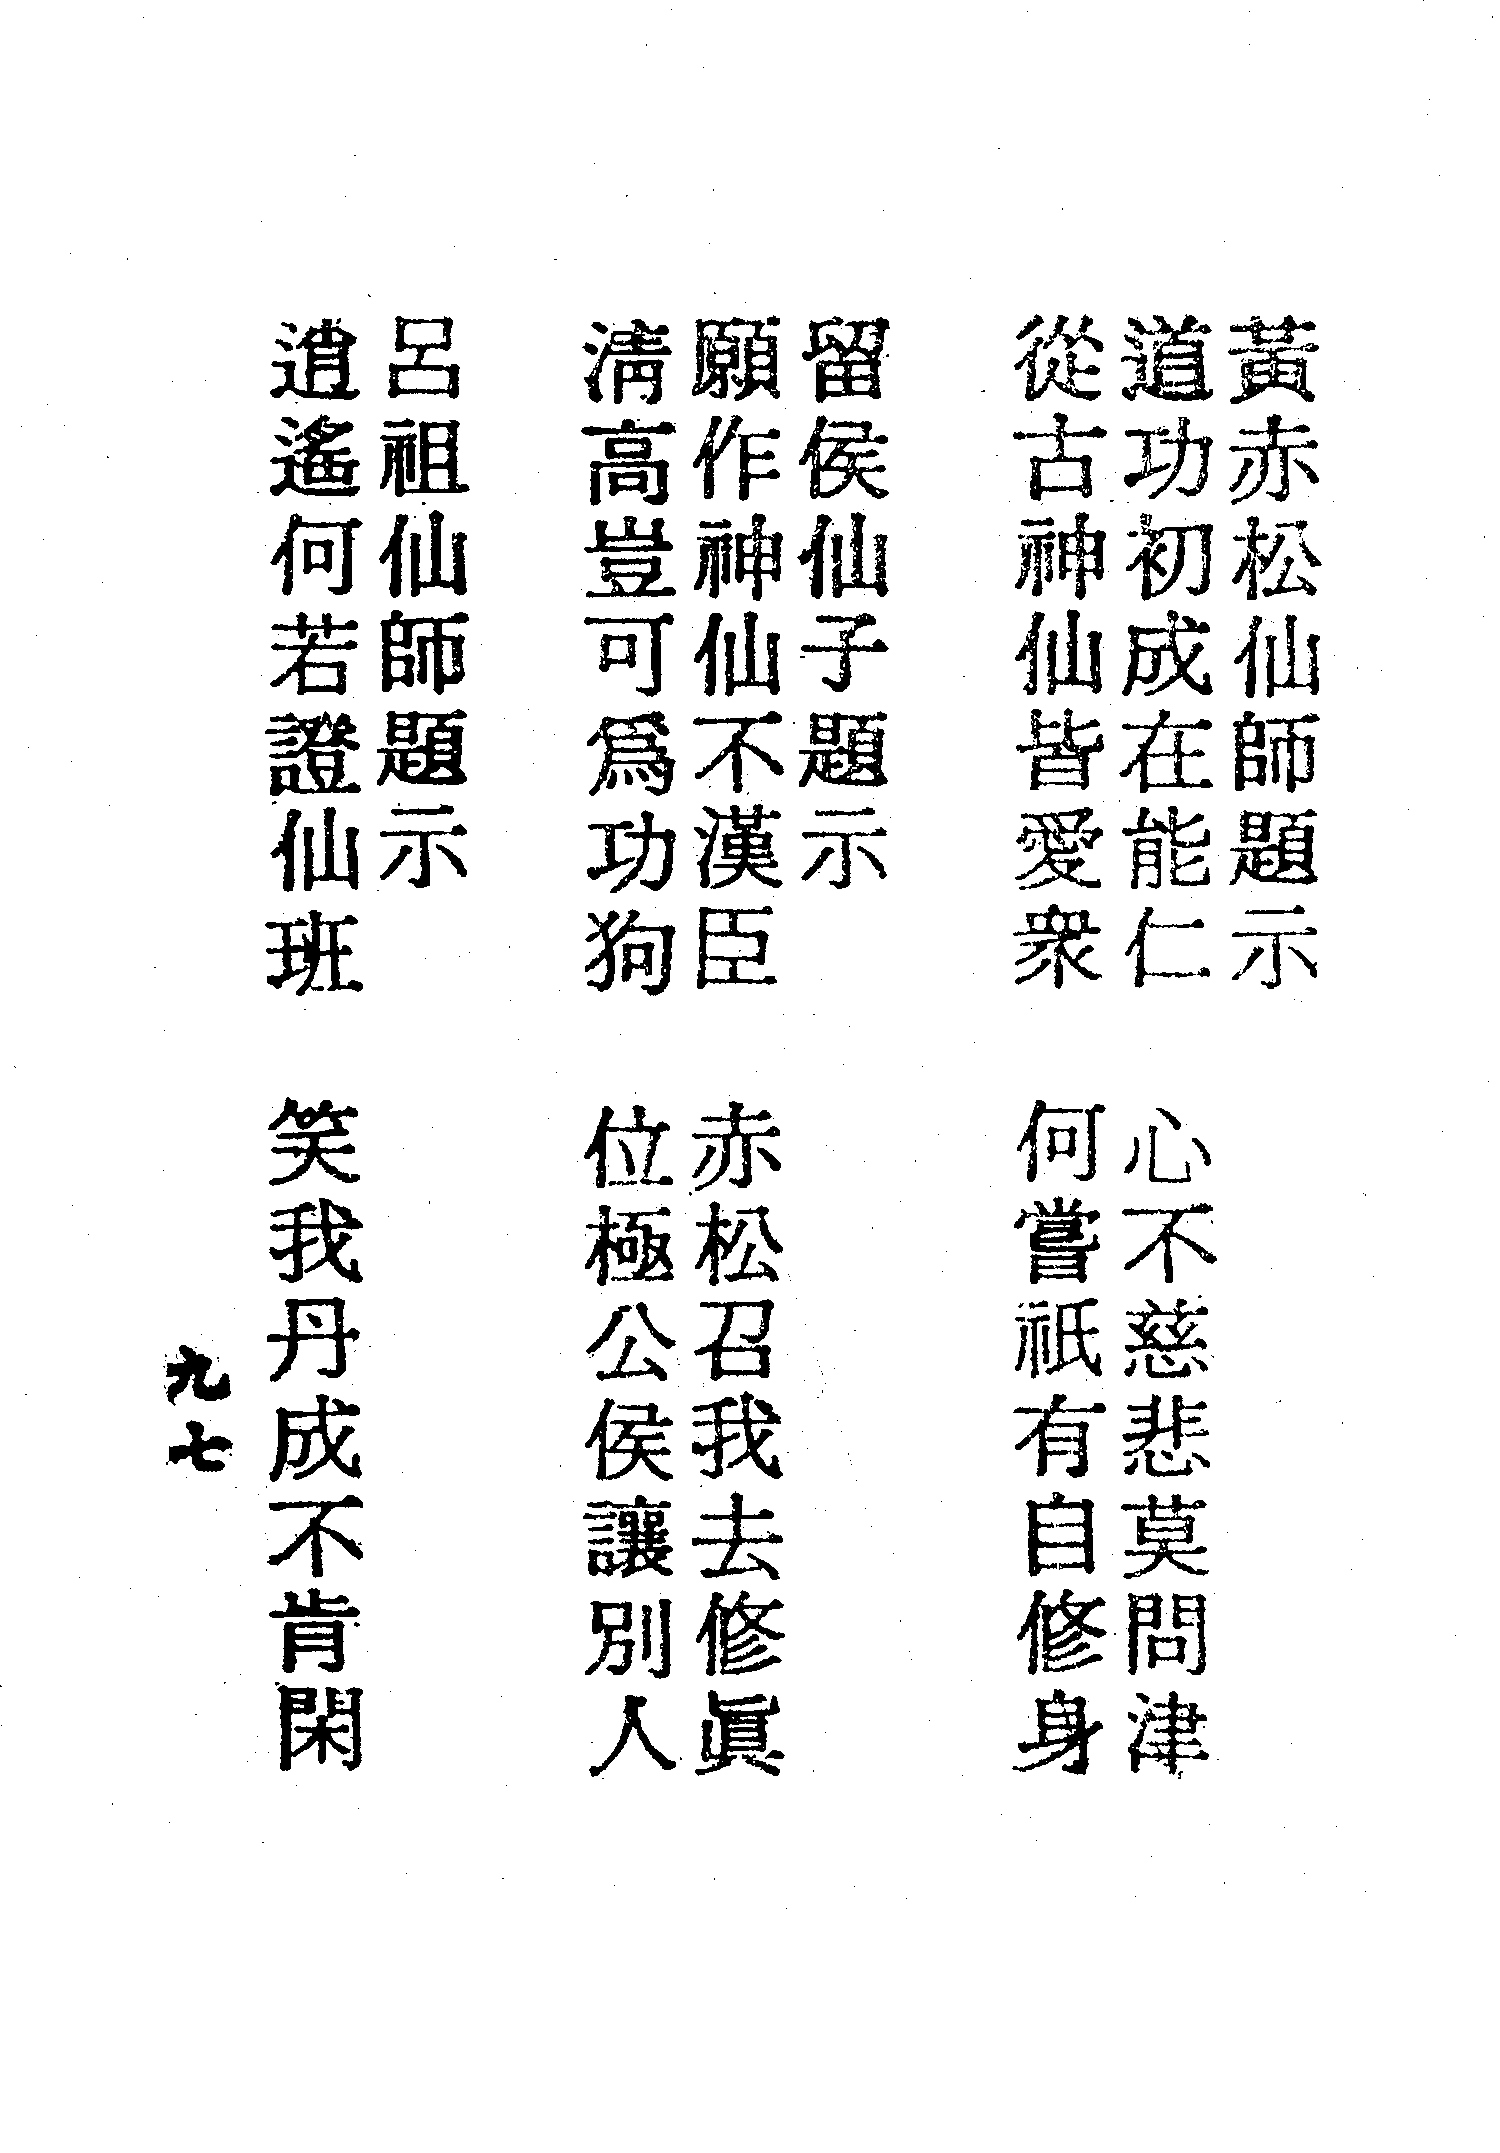 黃赤松仙師題示
道功初成在能仁　心不慈悲莫問津
從古神仙皆愛衆　何嘗祇有自修身
留侯仙子題示
願作神仙不漢臣　赤松召我去修眞
淸高豈可爲功狗　位極公侯讓別人
呂祖仙師題示
逍遙何若證仙班　笑我丹成不肯閑
九七